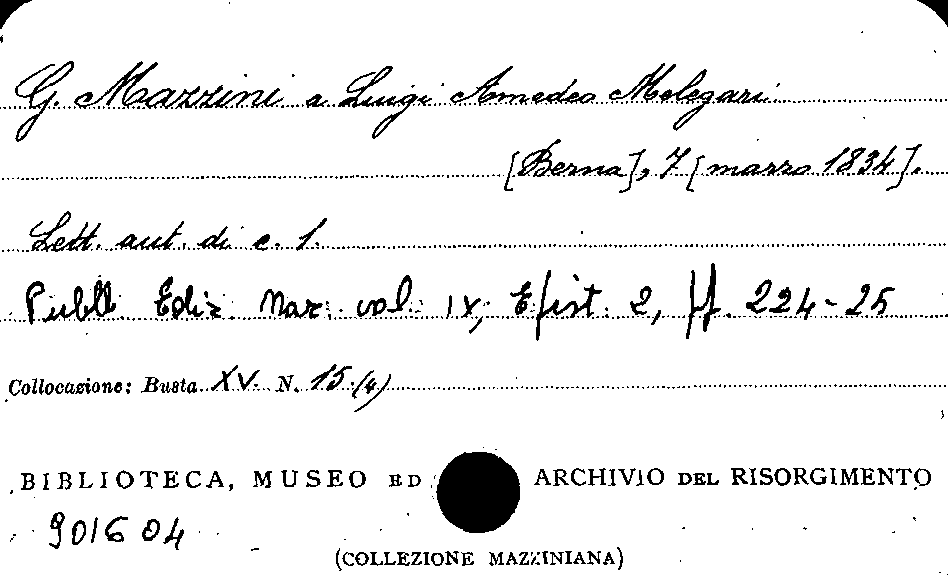 G. Mazzini a Luigi Amedeo Melegari
[Berna], 7 [marzo 1834].
Lett. aut. di c. 1.
Pubbl. Ediz. Naz. vol. IX, Epist. 2, pp. 224-25
Collocazione: Busta XV. N. 15.(4)
BIBLIOTECA, MUSEO ED ARCHIVIO DEL RISORGIMENTO
901604
(COLLEZIONE MAZZINIANA)